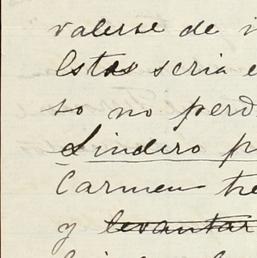 valerse de
Estas seria
so no perd
Lindero p
Carmen tre
y levantar